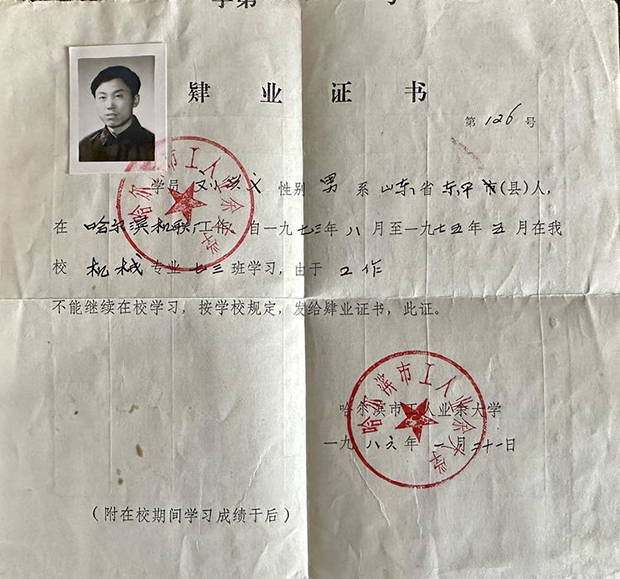 肄业证书
第126号
学员 刘 义 性别 男 系 山东 省 东平 市(县)人,
在 哈尔滨机联 工作, 自一九七三年八月至一九七五年五月在我
校 机械 专业 七三 班学习,由于 工作
不能继续在校学习,按学校规定,发给肄业证书,此证。
哈尔滨市工人业余大学
一九八六年一月二十一日
(附在校期间学习成绩于后)
哈尔滨市工人业余大学
哈尔滨市工人业余大学